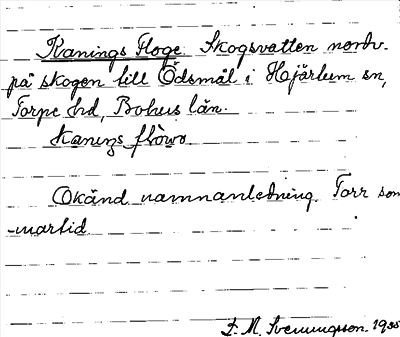 Kanings Floge. Skogsvatten nordv.
på skogen till Ödsmål i Hjärtum sn,
Torpe hd, Bohus län.
Kanings flòwo.
Okänd namnanledning. Torr som-
-martid
F. M. Svenungsson. 1935